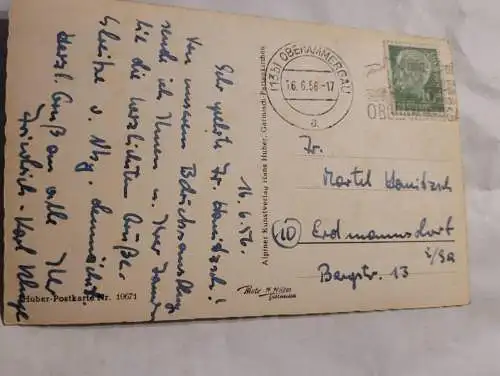 16.6.56.
Sehr geehrte Fr. Hanitzsch!
Von unserem Betriebsausflug
sende ich Ihnen u. Ihrer Familie
die herzlichsten Grüße.
u. Nbg. demnächst.
Herzl. Gruß an alle Ihr
Friedrich-Karl
Huber-Postkarte Nr. 10671
Alpiner Kunstverlag Hans Huber, Garmisch-Partenkirchen
Photo-H. Huber
Garmisch
(13b) OBERAMMERGAU
16.6.56-17
a
OB
Fr.
Martel Hanitzsch
10 Erdmannsdorf
i/Sa
Bergstr. 13